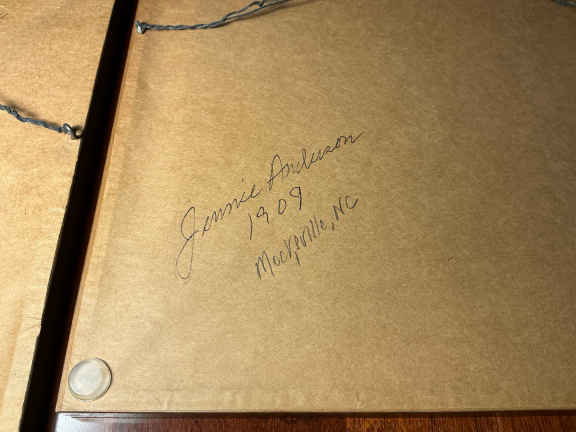 Jennie Anderson
1909
Mocksville, NC